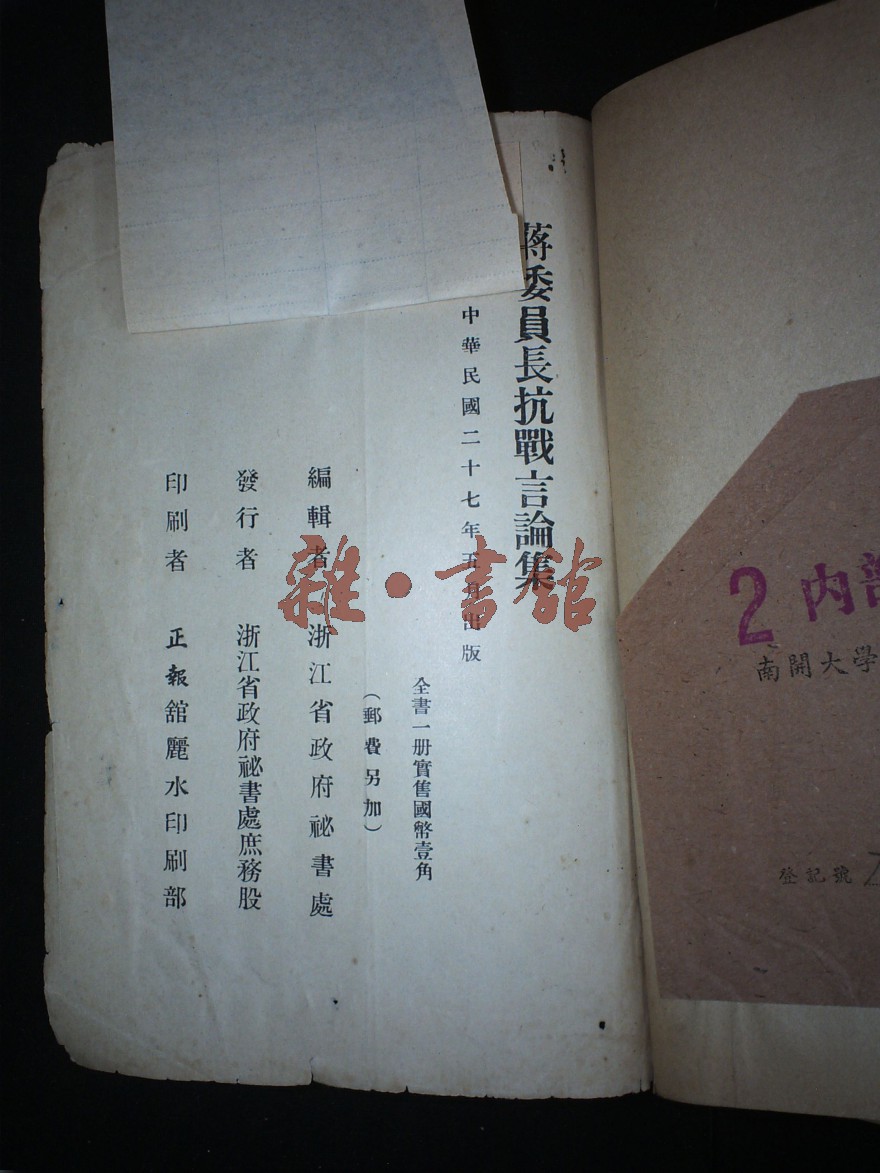 蔣委員長抗戰言論集
中華民國二十七年五月出版
全書一册實售國幣壹角
（郵費另加）
編輯者 浙江省政府祕書處
發行者 浙江省政府祕書處庶務股
印刷者 正報舘麗水印刷部
雜·書舘
2 内部
南開大學
登記號